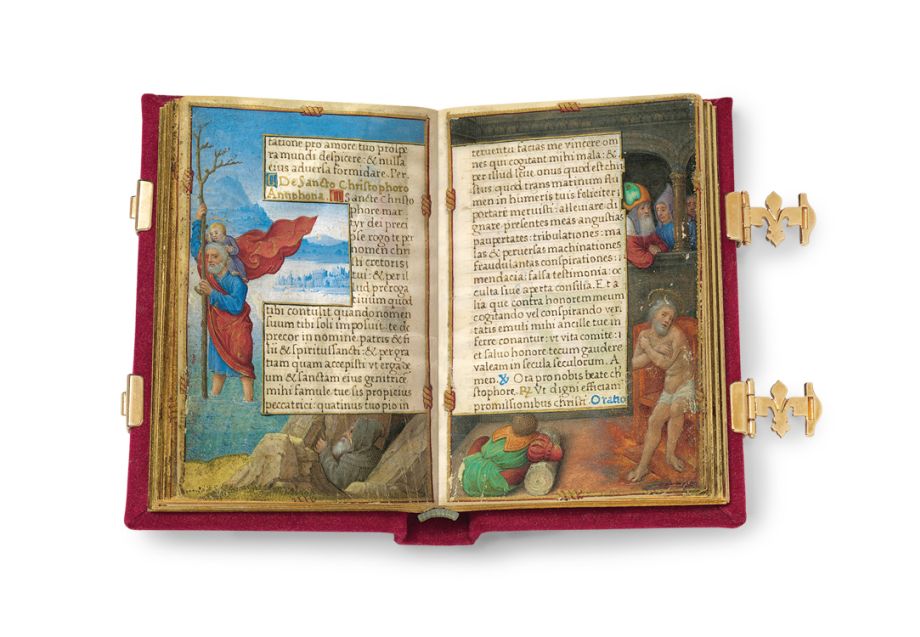 tatione pro amore tuo prospe
ra mundi despicere: & nulla
eius adversa formidare. Per.
De Sancto Christophoro
Antiphona. Sancte Christo
phore mar
tyr dei preci
ose rogo te per
nomen chri
sti cretoris i
tui: & per il
lud preroga
tiuum quod
tibi contulit quando nomen
suum tibi soli imposuit. te de
precor in nomine. patris & fi
lii & spiritus sancti: & per gra
tiam quam accepisti vt erga x
um & sanctam eius genitrice
mihi famule tue sis propicius
peccatrici: quatinus tuo pio in
teruentu facias me vincere om
nes qui cogitant mihi mala: &
per illud leue onus quod est chri
stus. quod trans marinum flu
men in humeris tuis feliciter i
portare meruisti: alleuiare di
gnare presentes meas angustias
paupertates: tribulationes: ma
las & peruersas machinationes
fraudulantas conspirationes:
mendacia: falsa testimonia: oc
culta siue aperta consilia. Et a
lia que contra honorem meum
cogitando vel conspirando ven
tatis emuli mihi ancille tue in
ferre conantur: vt vita comite: i
et saluo honore tecum gaudere
valeam in secula seculorum. A
men. Ora pro nobis beate ch
stophore. Vt digni efficiam
promissionibus christi. Oratio